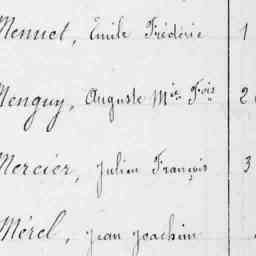 Mennet, Emile Frédéric 1
Menguy, Auguste Mie Fois 2
Mercier, Julien François 3
Mérel, Jean Joachim